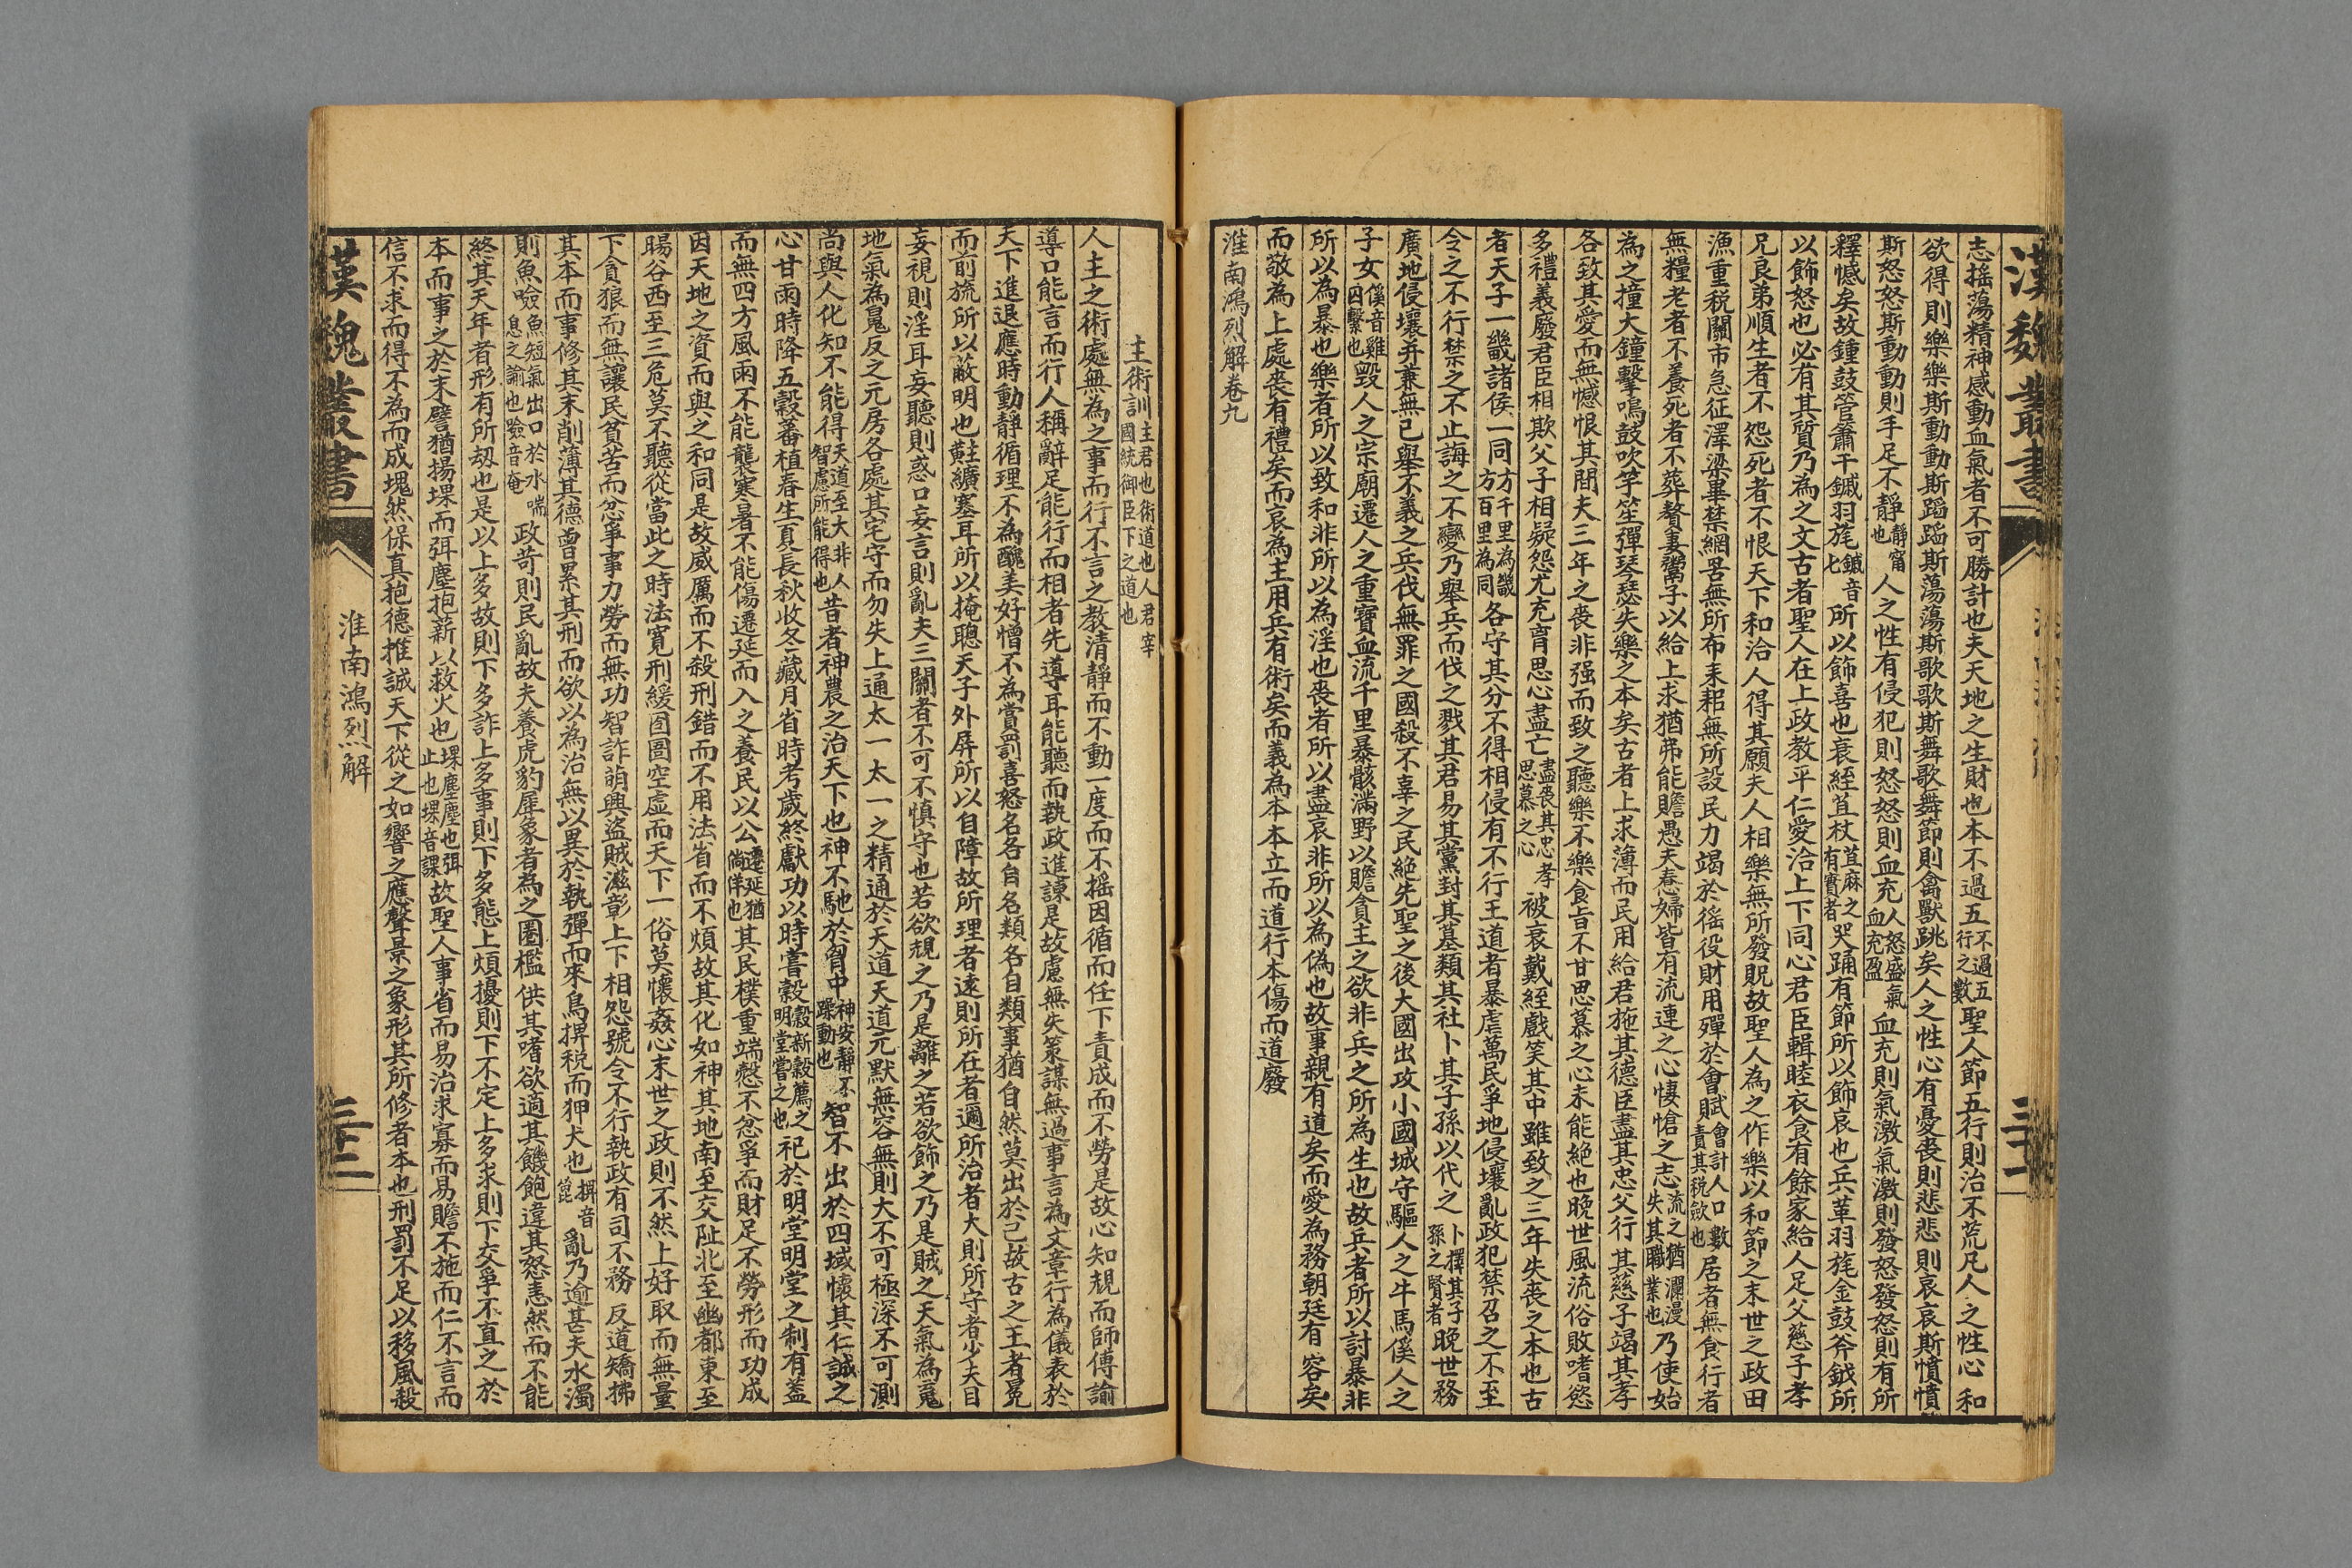 漢魏叢書
三十一
志摇蕩精神感動血氣者不可勝計也夫天地之生財也本不過五不過五行之數聖人節五行則治不荒凡人之性心和
欲得則樂樂斯動動斯蹈蹈斯蕩蕩斯歌歌斯舞歌舞節則禽獸跳矣人之性心有憂喪則悲悲則哀哀斯憤憤
斯怒怒斯動動則手足不靜靜甯也人之性有侵犯則怒怒則血充人怒盛氣血充盈血充則氣激氣激則發怒發怒則有所
釋憾矣故鐘鼓管簫干鏚羽旄鏚音七所以飾喜也衰絰苴杖苴麻之有實者哭踊有節所以飾哀也兵革羽旄金鼓斧鉞所
以飾怒也必有其質乃為之文古者聖人在上政教平仁愛洽上下同心君臣輯睦衣食有餘家給人足父慈子孝
兄良弟順生者不怨死者不恨天下和洽人得其願夫人相樂無所發貺故聖人為之作樂以和節之末世之政田
漁重税關市急征澤梁畢禁網罟無所布耒耜無所設民力竭於徭役財用殫於會賦會計人口數責其税斂也居者無食行者
無糧老者不養死者不葬贅妻鬻子以給上求猶弗能贍愚夫憃婦皆有流連之心悽愴之志流之猶瀾漫失其職業也乃使始
為之撞大鐘擊鳴鼓吹竽笙彈琴瑟失樂之本矣古者上求薄而民用給君施其德臣盡其忠父行其慈子竭其孝
各致其愛而無憾恨其間夫三年之喪非强而致之聽樂不樂食旨不甘思慕之心未能絶也晚世風流俗敗嗜慾
多禮義廢君臣相欺父子相疑怨尤充胷思心盡亡盡喪其忠孝思慕之心被衰戴絰戲笑其中雖致之三年失喪之本也古
者天子一畿諸侯一同方千里為畿方百里為同各守其分不得相侵有不行王道者暴虐萬民爭地侵壤亂政犯禁召之不至
令之不行禁之不止誨之不變乃舉兵而伐之戮其君易其黨封其墓類其社卜其子孫以代之卜擇其子孫之賢者晚世務
廣地侵壤并兼無已舉不義之兵伐無罪之國殺不辜之民絶先聖之後大國出攻小國城守驅人之牛馬傒人之
子女傒音雞囚繫也毀人之宗廟遷人之重寶血流千里暴骸滿野以贍貪主之欲非兵之所為生也故兵者所以討暴非
所以為暴也樂者所以致和非所以為淫也喪者所以盡哀非所以為偽也故事親有道矣而愛為務朝廷有容矣
而敬為上處喪有禮矣而哀為主用兵有術矣而義為本本立而道行本傷而道廢
淮南鴻烈解卷九
主術訓主君也術道也人君宰國統御臣下之道也
人主之術處無為之事而行不言之教清靜而不動一度而不摇因循而任下責成而不勞是故心知規而師傅諭
導口能言而行人稱辭足能行而相者先導耳能聽而執政進諫是故慮無失策謀無過事言為文章行為儀表於
天下進退應時動靜循理不為醜美好憎不為賞罰喜怒名各自名類各自類事猶自然莫出於己故古之王者冕
而前旒所以蔽明也黈纊塞耳所以掩聰天子外屏所以自障故所理者遠則所在者邇所治者大則所守者少夫目
妄視則淫耳妄聽則惑口妄言則亂夫三關者不可不慎守也若欲規之乃是離之若欲飾之乃是賊之天氣為䰟
地氣為鬼反之元房各處其宅守而勿失上通太一太一之精通於天道天道元默無容無則大不可極深不可測
尚與人化知不能得天道至大非人智慮所能得也昔者神農之治天下也神不馳於胷中神安靜不躁動也智不出於四域懷其仁誠之
心甘雨時降五穀蕃植春生夏長秋收冬藏月省時考歲終獻功以時嘗穀穀新穀薦之明堂嘗之也祀於明堂明堂之制有蓋
而無四方風雨不能襲寒暑不能傷遷延而入之養民以公遷延猶倘佯也其民樸重端慤不忿爭而財足不勞形而功成
因天地之資而與之和同是故威厲而不殺刑錯而不用法省而不煩故其化如神其地南至交阯北至幽都東至
暘谷西至三危莫不聽從當此之時法寬刑緩囹圄空虛而天下一俗莫懷姦心末世之政則不然上好取而無量
下貪狼而無讓民貧苦而忿爭事力勞而無功智詐萌興盜賊滋彰上下相怨號令不行執政有司不務反道矯拂
其本而事修其末削薄其德曽累其刑而欲以為治無以異於執彈而來鳥捭税而狎犬也捭音𩫯亂乃逾甚夫水濁
則魚噞魚短氣出口於水喘息之諭也噞音奄政苛則民亂故夫養虎豹犀象者為之圈檻供其嗜欲適其饑飽違其怒恚然而不能
終其天年者形有所刼也是以上多故則下多詐上多事則下多態上煩擾則下不定上多求則下交爭不直之於
本而事之於末譬猶揚堁而弭塵抱薪以救火也堁塵塵也弭止也堁音課故聖人事省而易治求寡而易贍不施而仁不言而
信不求而得不為而成塊然保真抱德推誠天下從之如響之應聲景之象形其所修者本也刑罰不足以移風殺
漢魏叢書
淮南鴻烈解
三十二